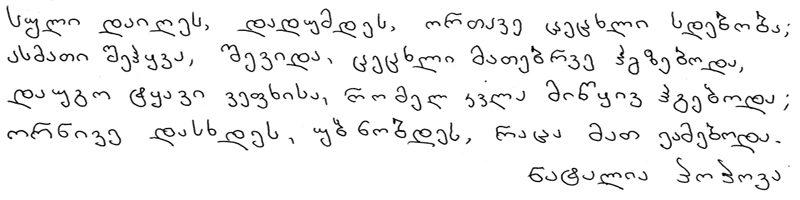 სული დაიღეს, დადუმდეს, ორთავე ცეცხლი სდებოდა;
ასმათი შეჰყვა, შევიდა, ცეცხლი მათებრვე ჰგზებოდა,
დაუგო ტყავი ვეფხისა, რომელ კვლა მიწყივ ჰგებოდა;
ორნივე დასხდეს, უბნობდეს, რაცა მათ ეამებოდა.
ნატალია პოპოვა